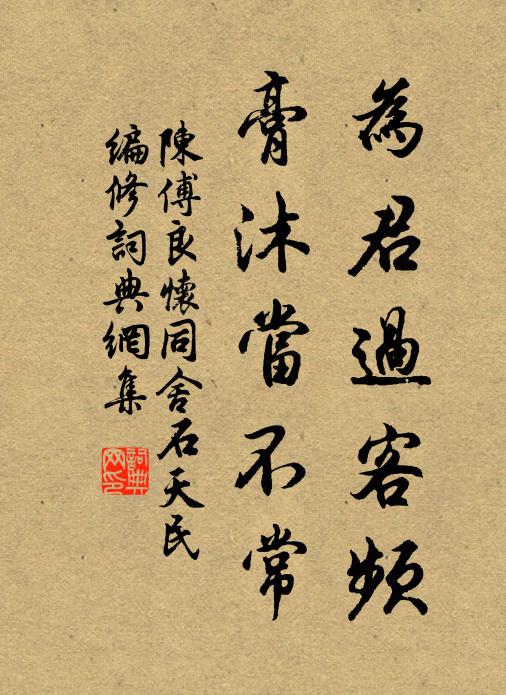 為君過客頻
膏沐當不常
陳傅良懷同舍石天民
編修詞典網集
詞典
网印